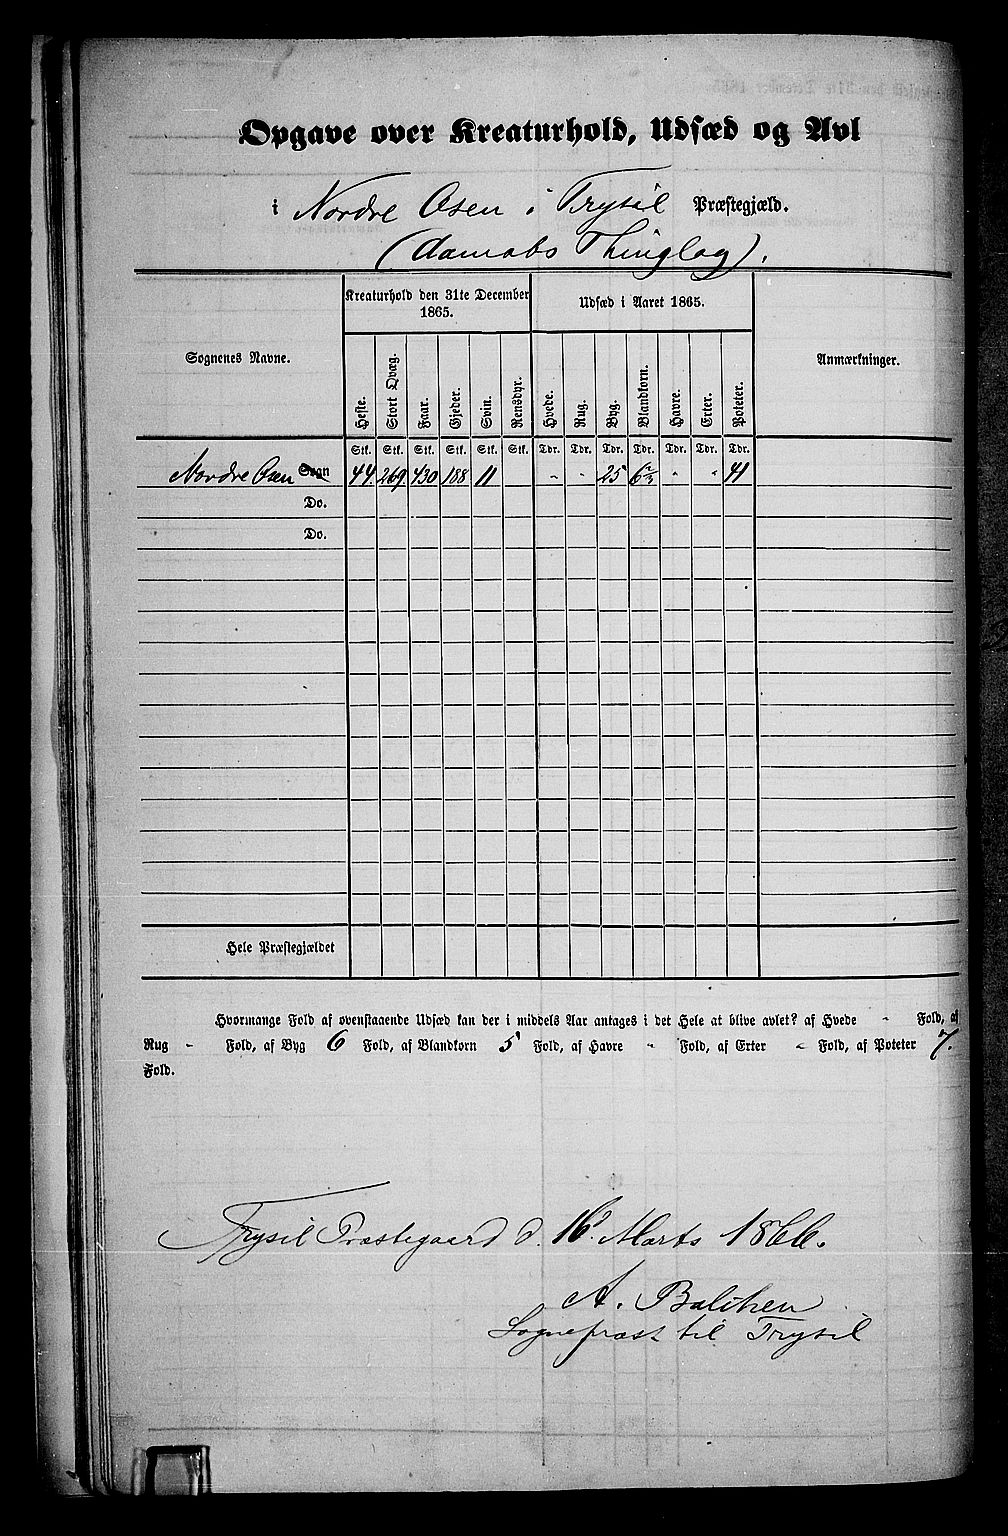 Opgave over Kreaturhold, Udsæd og Avl
i Nordre Osen i Trysil Præstegjæld.
(Aamots Thinglag).
Sognenes Navne.
Kreaturhold den 31te December
1865.
Udsæd i Aaret 1865.
Anmærkninger.
Heste. Stort Qvæg. Faar. Gjeder. Svin. Rensdyr. Hvede. Rug. Byg. Blandkorn. Havre. Erter. Poteter.
Stk. Stk. Stk. Stk. Stk. Stk. Tdr. Tdr. Tdr. Tdr. Tdr. Tdr. Tdr.
Nordre Osen Sogn 44. 269 430 188 11 " " 25 " " 41
Do.
Do.
Hele Præstegjældet
Hvormange Fold af ovenstaaende Udsæd kan der i middels Aar antages i det Hele at blive avlet? af Hvede " Fold, af
Rug " Fold, af Byg 6 Fold, af Blandkorn 5 Fold, af Havre " Fold, af Erter " Fold, af Poteter 7.
Fold.
Trysil Præstegaard d. 16. Marts 1866.
A. Balchen
Sognepræst til Trysil